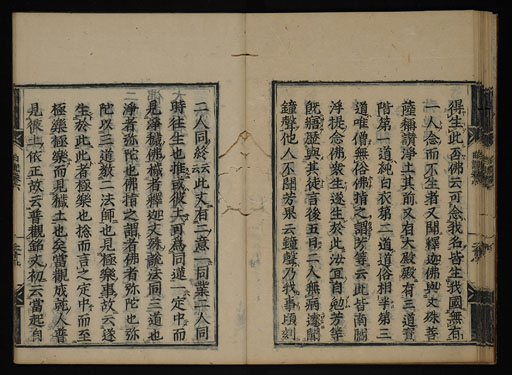 得生此否佛云可念我名皆生我國無有
一人念而不生者又聞釋迦佛與文殊菩
薩稱讚淨土其前又有大殿殿有三道寶
階第一道純白衣第二道道俗相半第三
道唯僧無俗佛指之謂芳等云此皆南閻
浮提念佛衆生遂生於此汝宜自勉芳等
旣寤歷與其徒言後五日二人無病遽聞
鐘聲他人不聞芳果云鐘聲乃我事頃刻
二人同終云云此文有二意一同業二人同
時往生也推或彼土可爲同道一定中而
見淨穢佛穢者釋迦文殊說法同三道也
二淨者弥陀也佛指之謂者佛者弥陀也弥
陀以三道敎二法師也見極樂事故云遂
生於此此者極樂也捨而言之定中而至
極樂極樂而見穢土也矣當觀成就人普
見依土依正故云普觀節文初云當起自